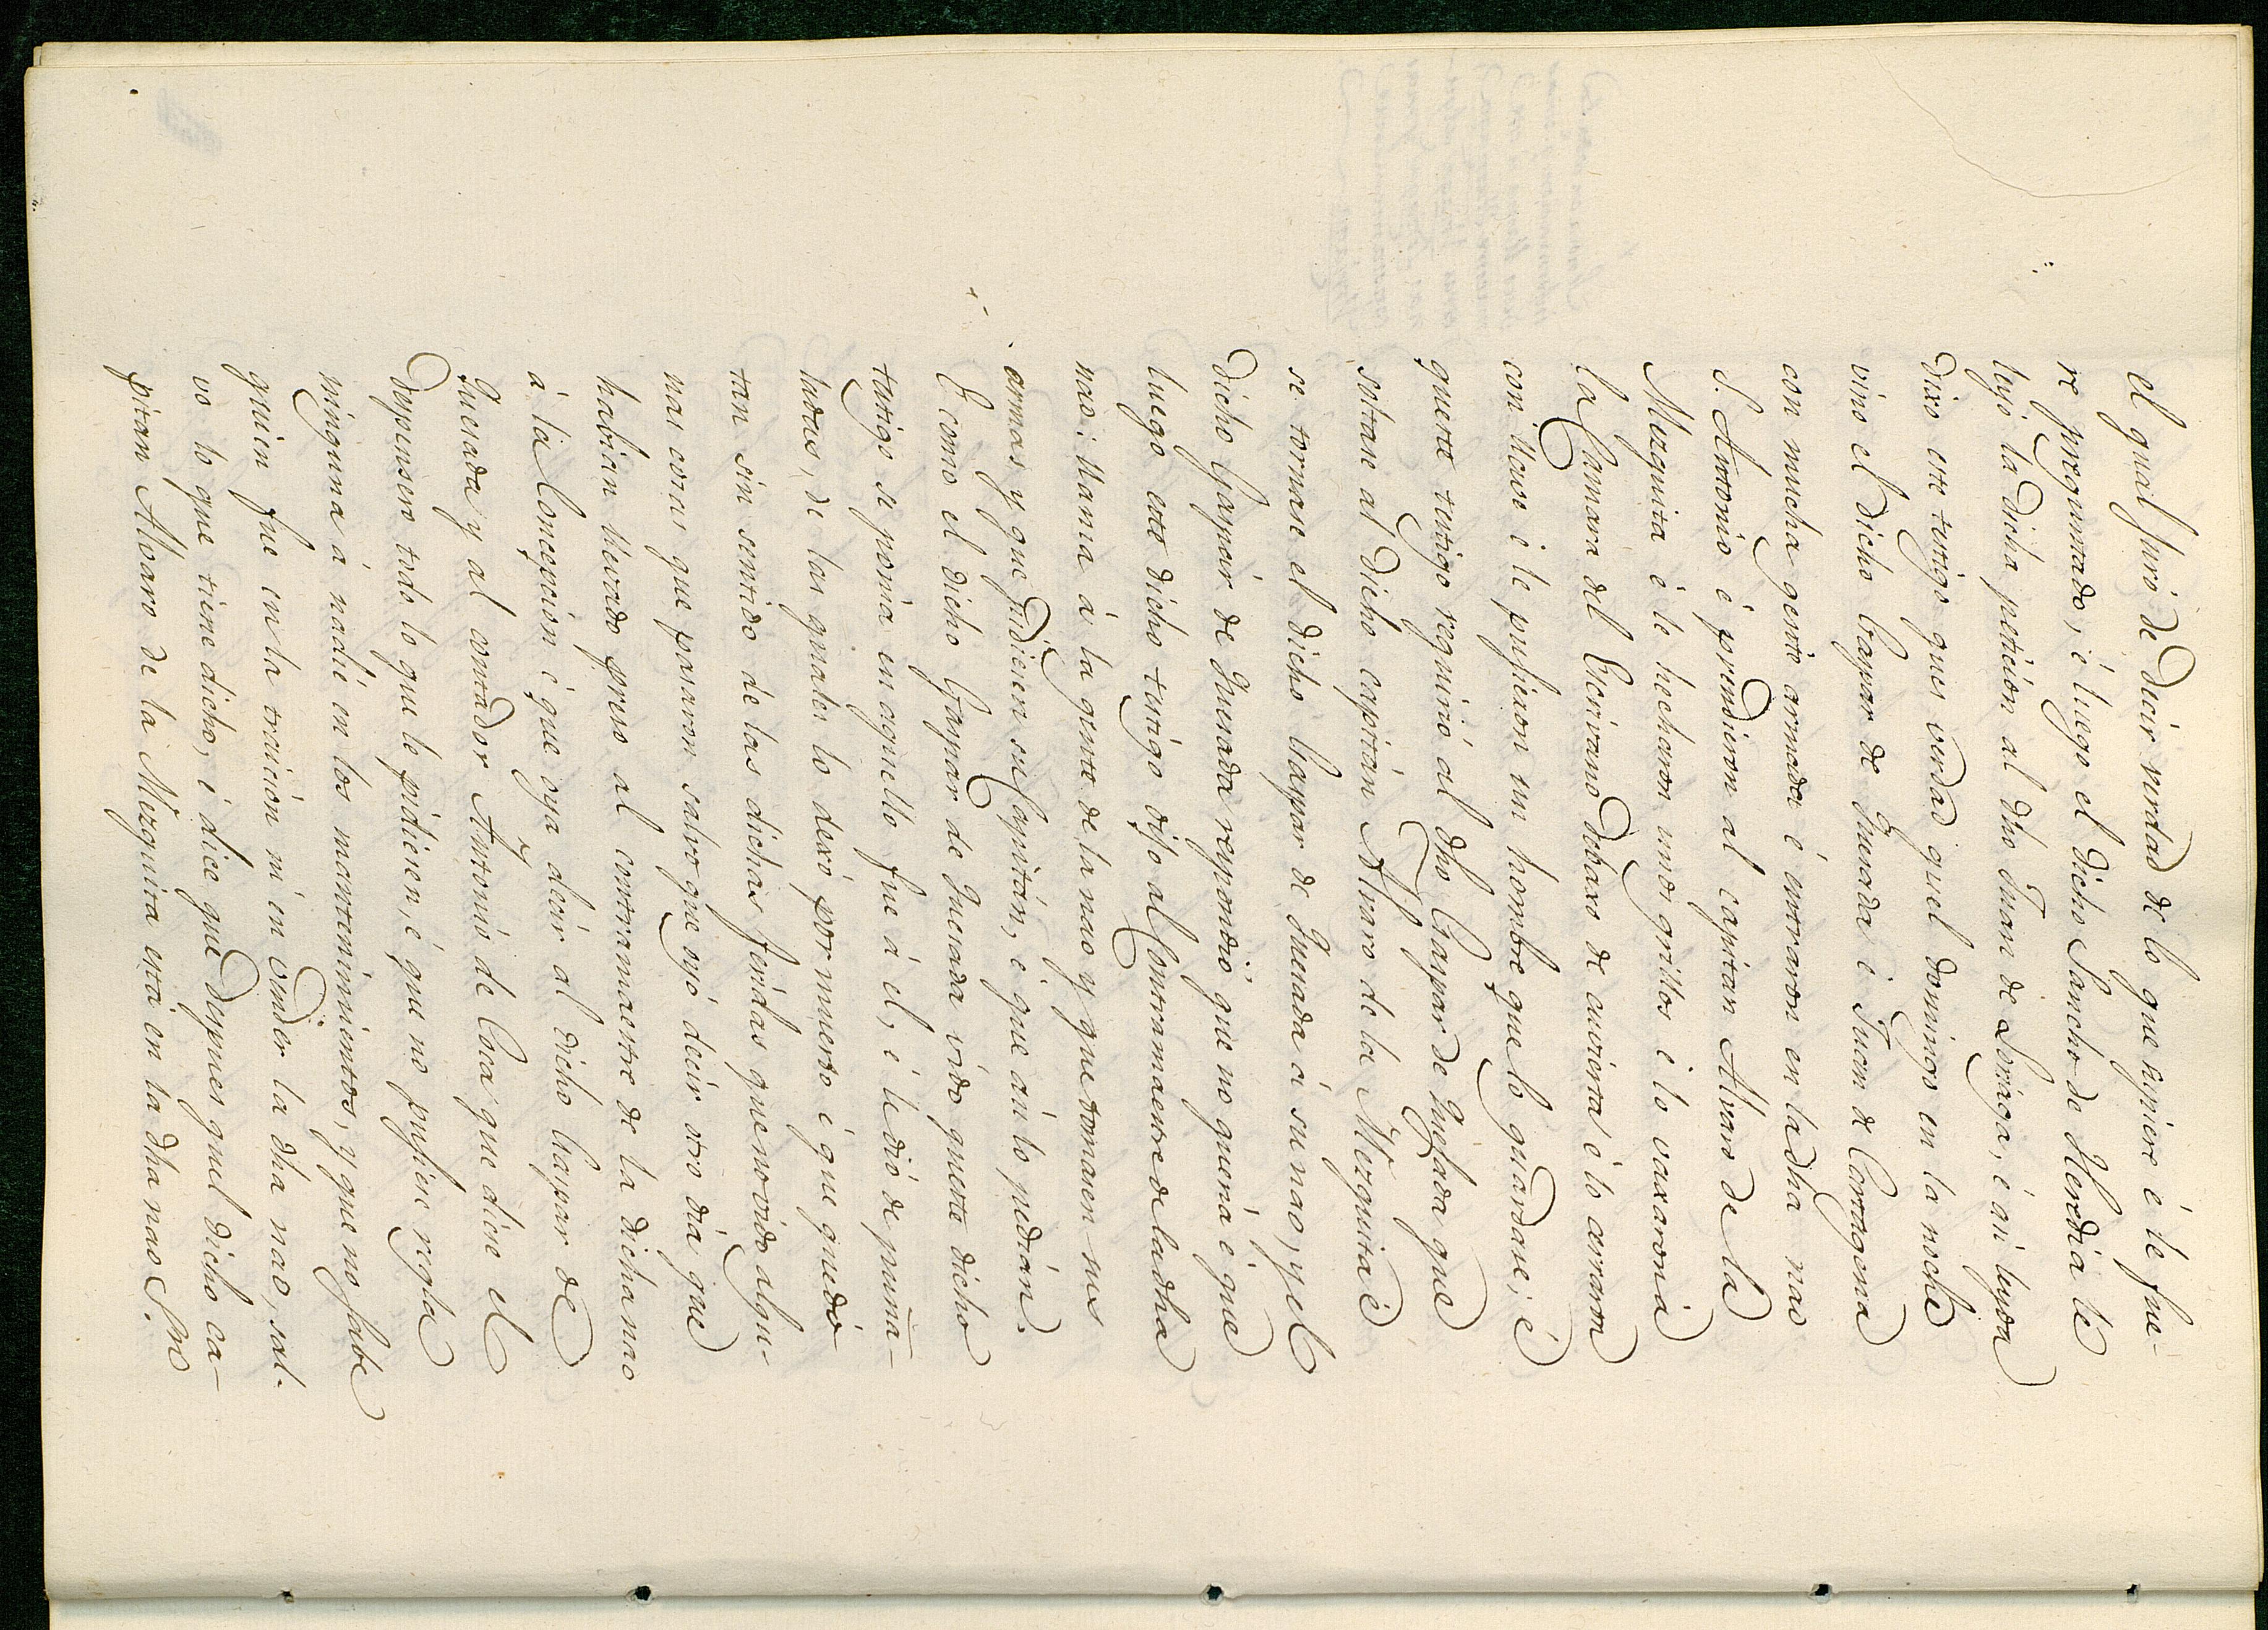 el qual juró de decir verdad de lo que supiere é le fue-
re preguntado, é luego el dicho Sancho de Heredia le
leyó la dicha peticion al dho Juan de Loriaga, é asi leyda
dixo este testigo ques verdad quel domingo en la noche
vino el dicho Gaspar de Quesada é Juan de Cartagena
con mucha gente armada é entraron en la dha nao
S. Antonio é prendieron al capitan Alvaro de la
Mezquita é le hecharon unos grillos é lo vaxaron á
la Camara del Escrivano debaxo de cuvierta é lo cerraron
con llave é le pusieron un hombre que lo guardase; é
queste testigo requirió al dho Gaspar de Quesada que
soltase al dicho capitán Alvaro de la Mezquita é
se tornase el dicho Gaspar de Quesada á su nao, y el
dicho Gaspar de Quesada respondió que no queria é que
luego este dicho testigo dijo al Contramaestre de la dha
nao: llama á la gente de la nao y que tomasen sus
armas y que pidiesen su Capitán, é que asi lo pedian.
E como el dicho Gaspar de Quesada vido queste dicho
testigo se ponia en aquello fue á él, é le dió de puña-
ladas, de las quales lo dexó por muerto é que quedó
tan sin sentido de las dichas feridas que no vido algu-
nas cosas que pasaron salvo que oyó decir otro dia que
habian llevado preso al contramaestre de la dicha nao
á la Concepción é que oya decir al dicho Gaspar de
Quesada y al contador Antonio de Coca que diese el
Despensero todo lo que le pidiesen, é que no pusiese regla
ninguna á nadie en los mantenimientos, y que no sabe
quien fue en la traición ni en vender la dha nao, sal-
vo lo que tiene dicho, é dice que despues quel dicho ca-
pitan Alvaro de la Mezquita está en la dha nao S.